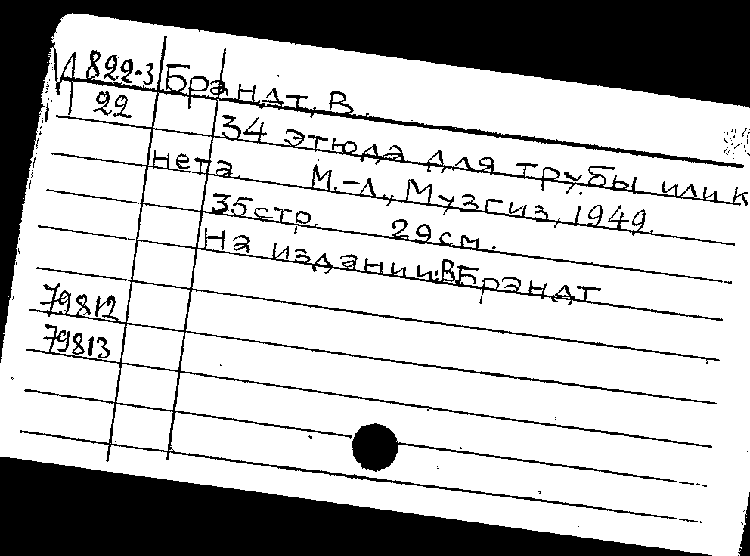 И 822-3 Брандт, В.
22
34 этюда для трубы или к
нета. М.-Л., Музгиз, 1949.
35стр. 29см.
На издании: В. Брандт
79812
79813